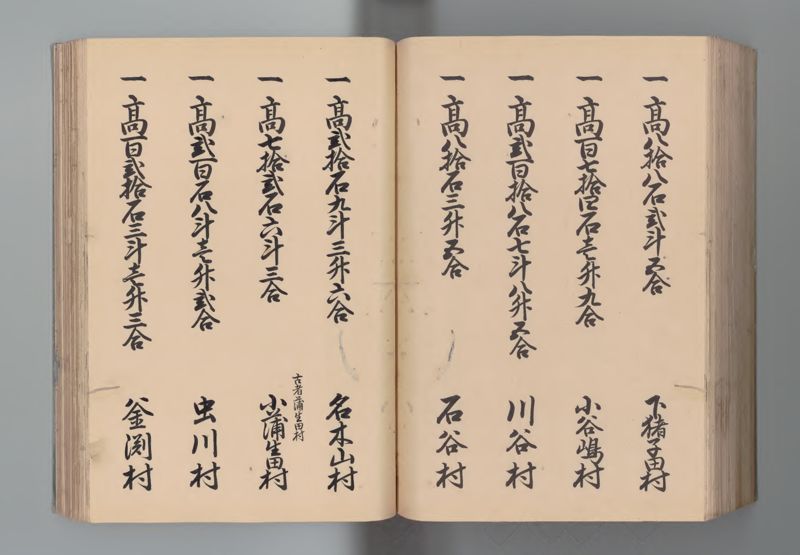 一高八拾八石弐斗五合 下猪子田村
一高百七拾四石壱升九合 小谷嶋村
一高弐百拾八石七斗八升五合 川谷村
一高八拾石三升五合 石谷村
一高弐拾石九斗三升六合 名木山村
古者蒲生田村
一高七拾弐石六斗三合 小蒲生田村
一高弐百石八斗壱升弐合 虫川村
一高百弐拾石三斗壱升三合 釜渕村